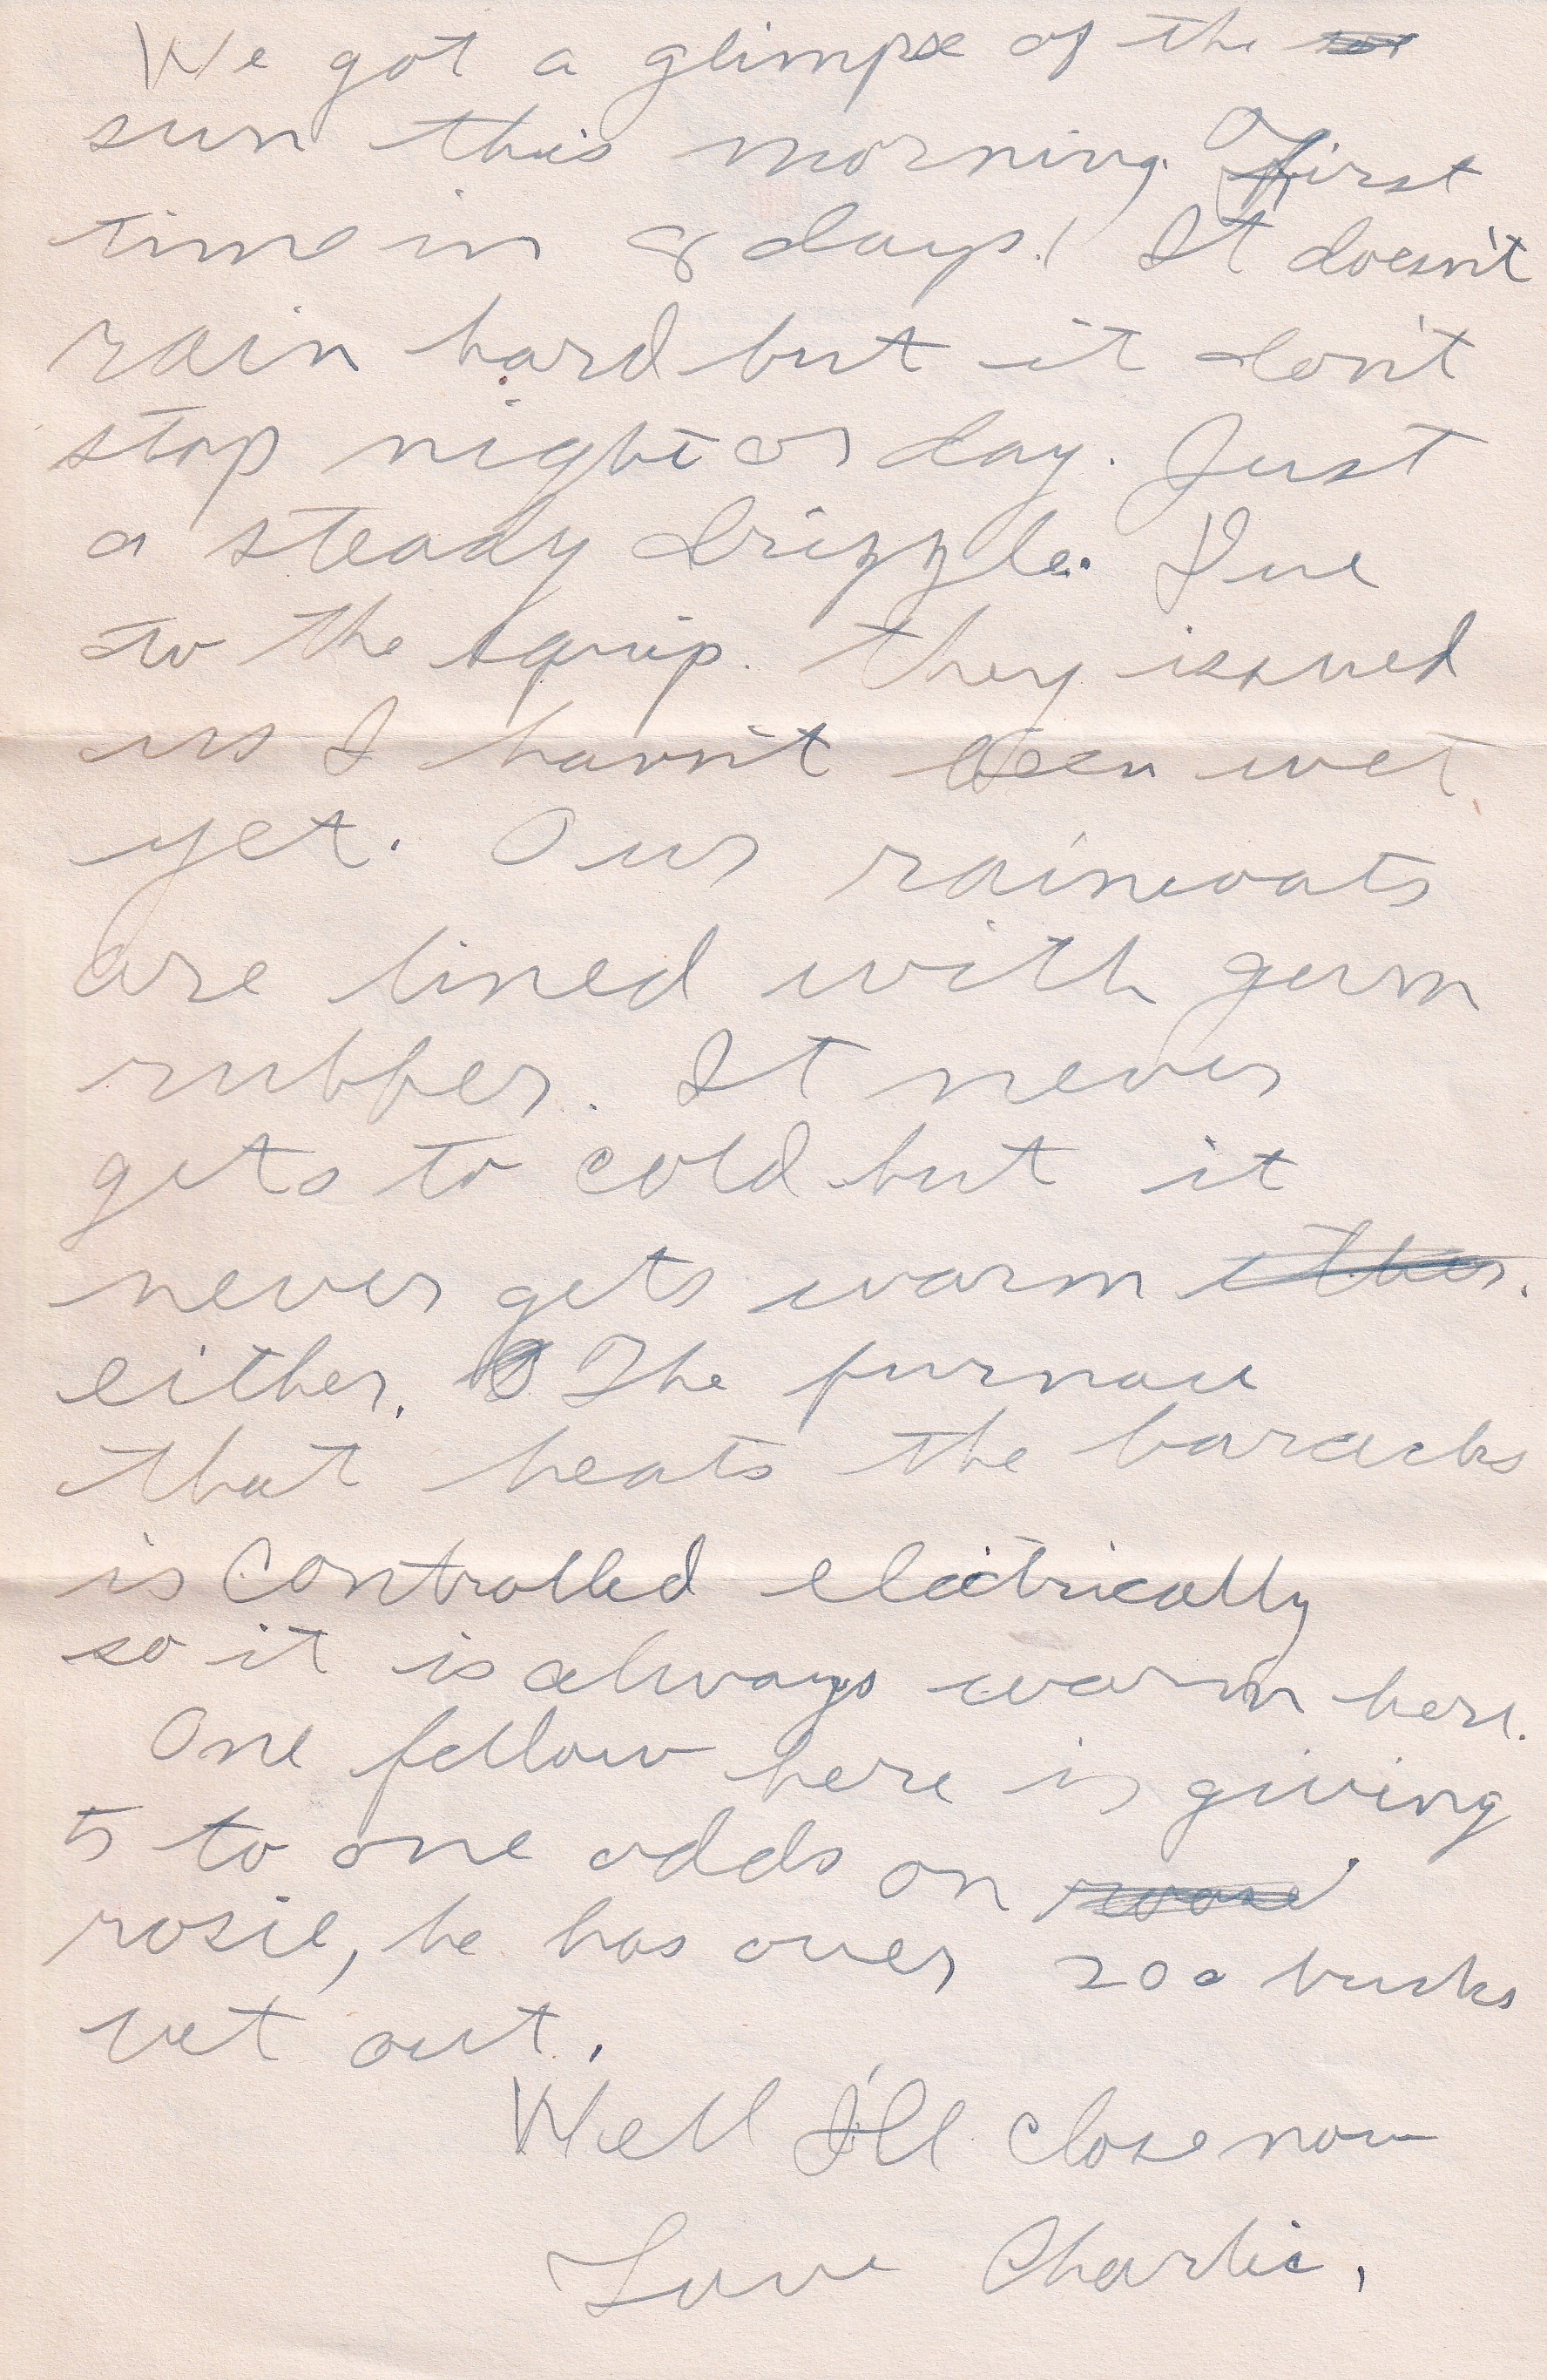 We got a glimpse of the
sun this morning. First
time in 8 days! It doesn't
rain hard but it don't
stop night or day. Just
a steady drizzle. Due
to the equip. they issued
us I havn't been wet
yet. Our raincoats
are lined with gum
rubber. It never
gets to cold but it
never gets warm ither.
either. The furnace
that heats the baracks
is controlled electrically
so it is always warm here.
One fellow here is giving
5 to one odds on
rosie, he has over 200 bucks
bet out.
Well I'll close now
Love Charlie,